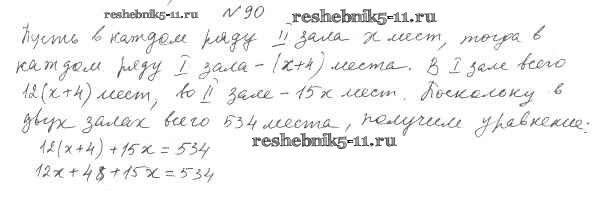 reshebnik5-11.ru № 90 reshebnik5-11.ru
Пусть в каждом ряду II зала x мест, тогда в
каждом ряду I зала - (x+4) места. В I зале всего
12(x+4) мест, во II зале - 15x мест. Поскольку в
двух залах всего 534 места, получим уравнение:
12(x+4)+15x = 534 reshebnik5-11.ru
12x+48+15x = 534